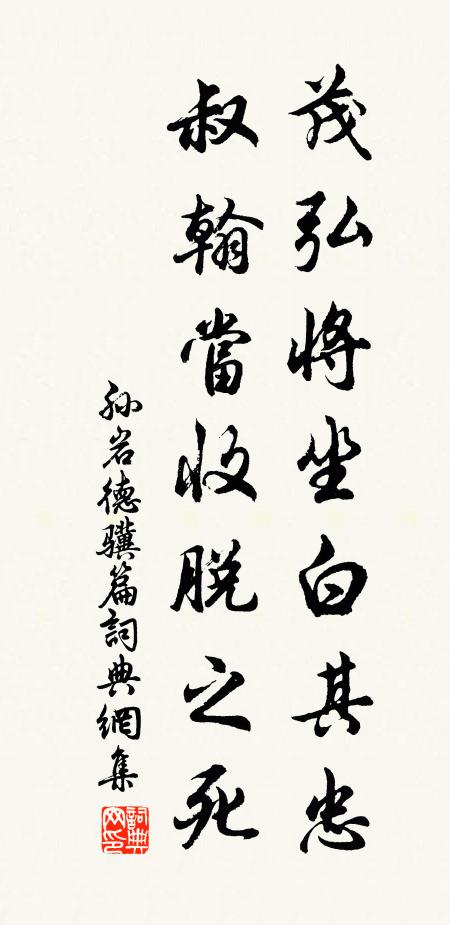 茂弘將坐白其忠
叔翰當收脱之死
孙岩德骥篇詞典網集
詞典网印